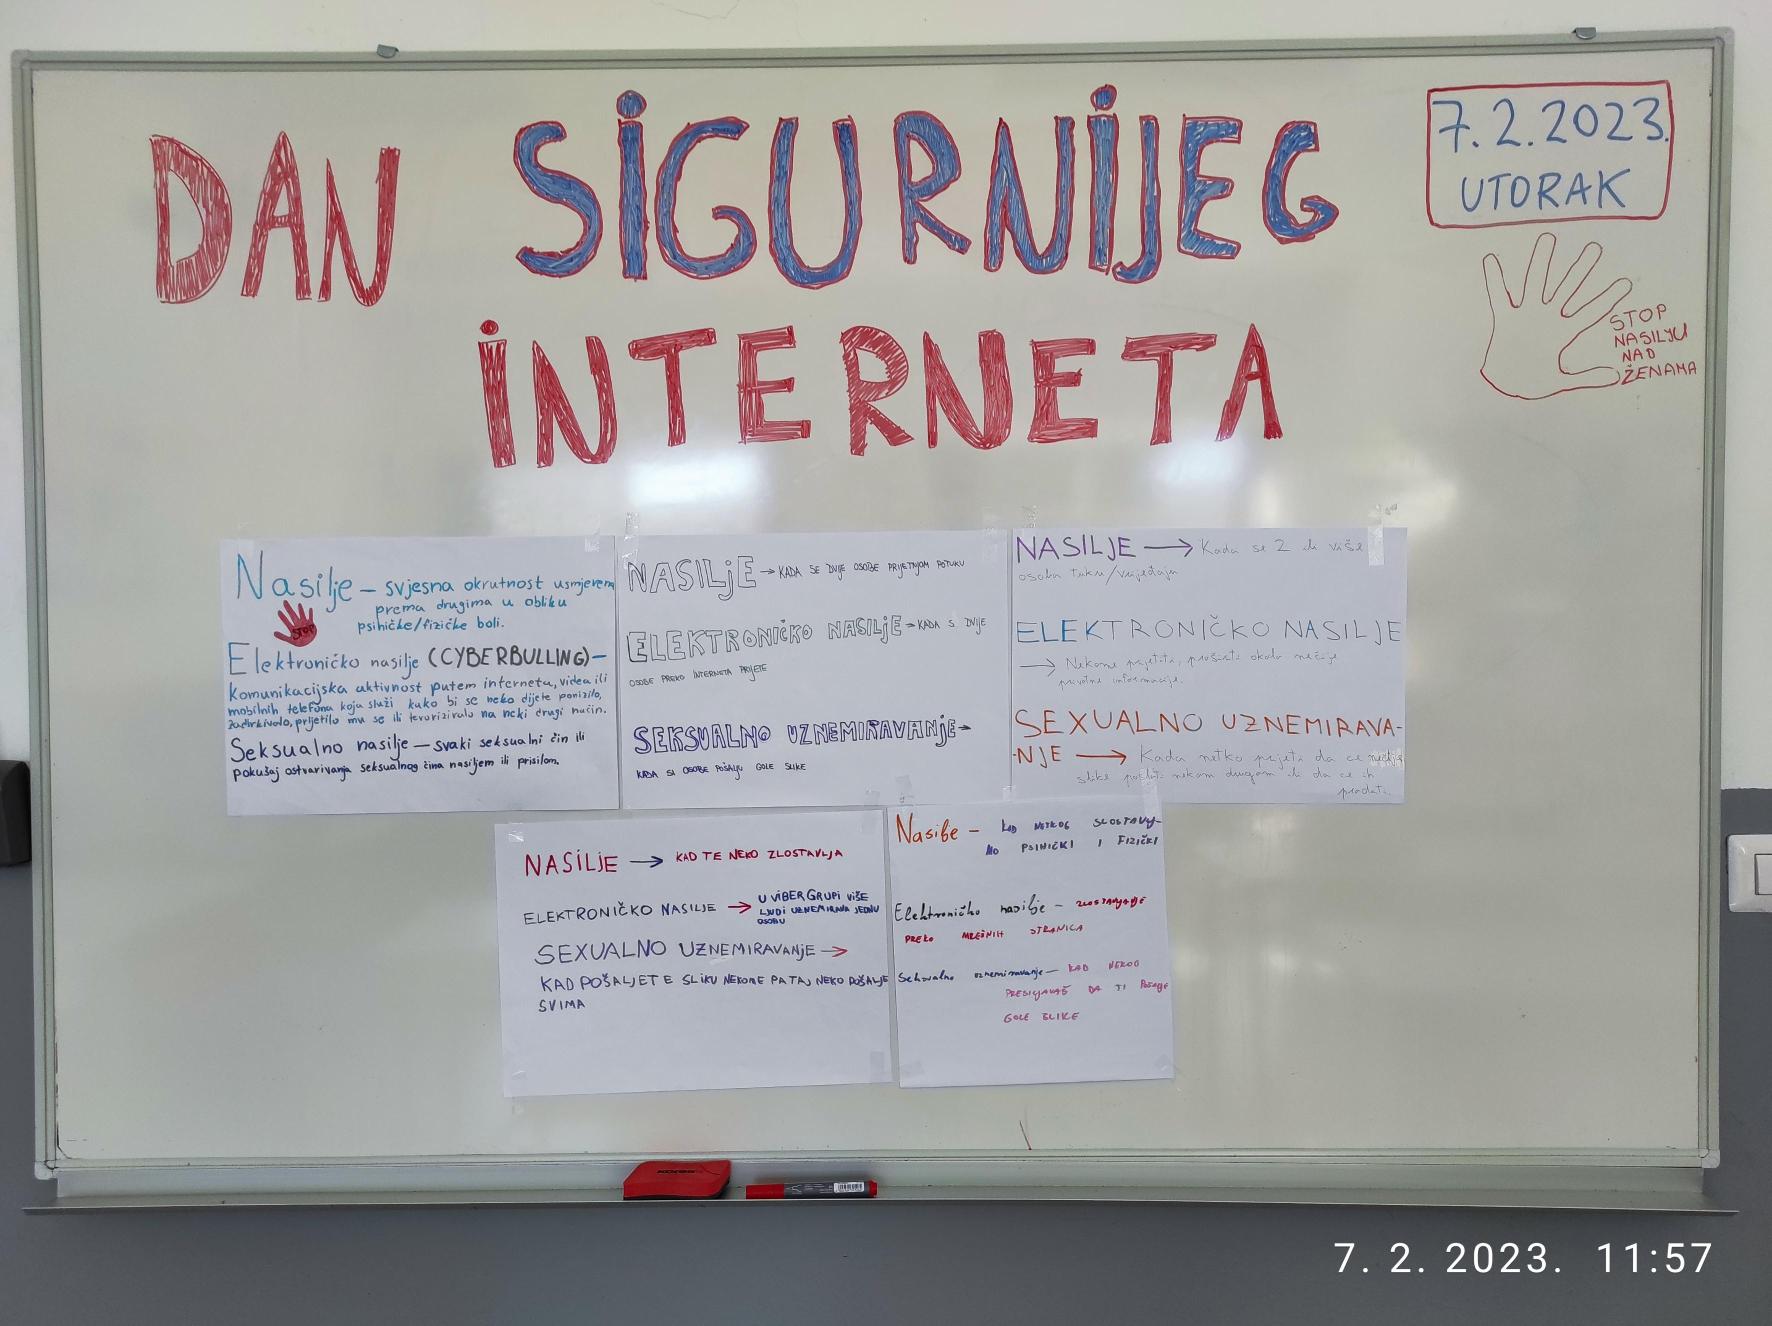 DAN SIGURNIJEG
INTERNETA
7.2.2023.
UTORAK
STOP
NASILJU
NAD
ŽENAMA
Nasilje – svjesna okrutnost usmjerena
prema drugima u obliku
psihičke/fizičke boli.
STOP
Elektroničko nasilje (CYBERBULLING) –
komunikacijska aktivnost putem interneta, videa ili
mobilnih telefona koja služi kako bi se neko dijete ponizilo,
zadirkivalo, prijetilo mu se ili teroriziralo na neki drugi način.
Seksualno nasilje – svaki seksualni čin ili
pokušaj ostvarivanja seksualnog čina nasiljem ili prisilom.
NASILJE → KADA SE DVIJE OSOBE PRIJETNJOM POTUKU
ELEKTRONIČKO NASILJE → KADA S DVIJE
OSOBE PREKO INTERNETA PRIJETE
SEKSUALNO UZNEMIRAVANJE →
KADA SI OSOBE POŠALJU GOLE SLIKE
NASILJE → Kada se 2 ili više
osoba tuku/vrijeđaju
ELEKTRONIČKO NASILJE
→ Nekome prijetiti, proširiti okolo nečije
privatne informacije.
SEXUALNO UZNEMIRAVA-
-NJE → Kada netko prijeti da će nečije
slike poslati nekom drugom ili da će ih
prodati.
NASILJE → KAD TE NEKO ZLOSTAVLJA
ELEKTRONIČKO NASILJE → U VIBER GRUPI VIŠE
LJUDI UZNEMIRAVA JEDNU
OSOBU
SEXUALNO UZNEMIRAVANJE →
KAD POŠALJETE SLIKU NEKOME PA TAJ NEKO POŠALJE
SVIMA
Nasilje – KAD NEKOG
PSIHIČKI I FIZIČKI
Elektroničko nasilje – ZLOSTAVLJANJE
PREKO MREŽNIH STRANICA
Seksualno uznemiravanje – KAD NEKOG
DA TI POŠALJE
GOLE SLIKE
7. 2. 2023. 11:57